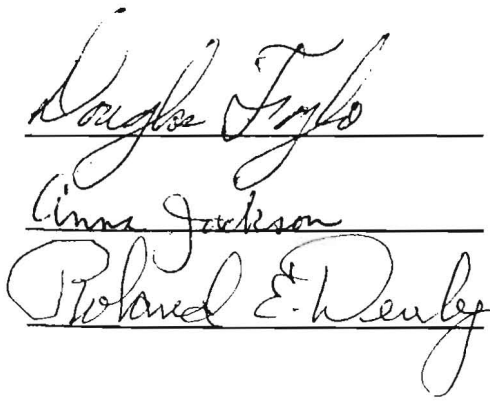 Douglas
Anna Jackson
Roland E. Denby